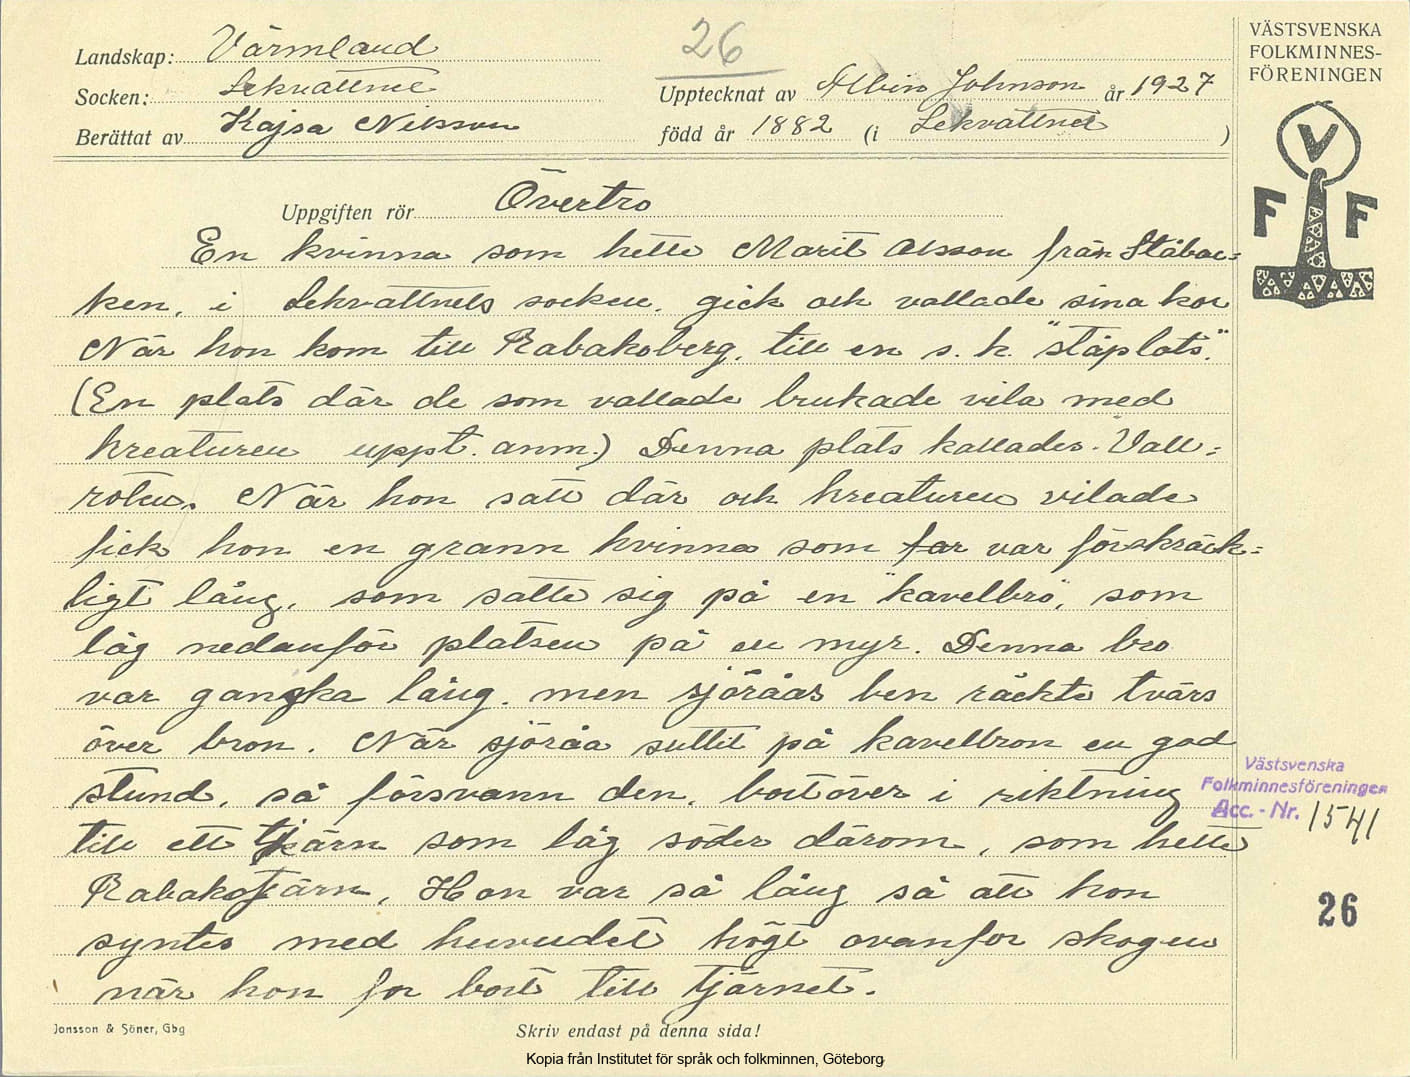 26
VÄSTSVENSKA
FOLKMINNES-
FÖRENINGEN
V
F F
Landskap: Värmland
Socken: Lekvattnet
Upptecknat av Albin Johnson år 1927
Berättat av Kajsa Nilsson
född år 1882 (i Lekvattnet )
Uppgiften rör Övertro
En kvinna som hette Marit Olsson från Ståbac=
ken, i Lekvattnets socken, gick och vallade sina kor
När hon kom till Rabakoberg, till en s.k. "ståplats".
(En plats där de som vallade brukade vila med
kreaturen uppt. anm.) Denna plats kallades "Vall=
roten. När hon satt där och kreaturen vilade
fick hon en grann kvinna som far var förskräck=
ligt lång, som satte sig på en "kavelbro", som
låg nedanför platsen på en myr. Denna bro
var gangska lång, men sjöråas ben räckte tvärs
över bron. När sjöråa suttit på kavelbron en god
stund, så försvann den, bortöver i riktning
till ett tjärn som låg söder därom, som hette
Rabakotjärn, Hon var så lång så att hon
syntes med huvudet högt ovanfor skogen
när hon for bort till tjärnet.
Västsvenska
Folkminnesföreningen
Acc. - Nr. 1541
26
Jonsson & Söner, Gbg
Skriv endast på denna sida!
Kopia från Institutet för språk och folkminnen, Göteborg